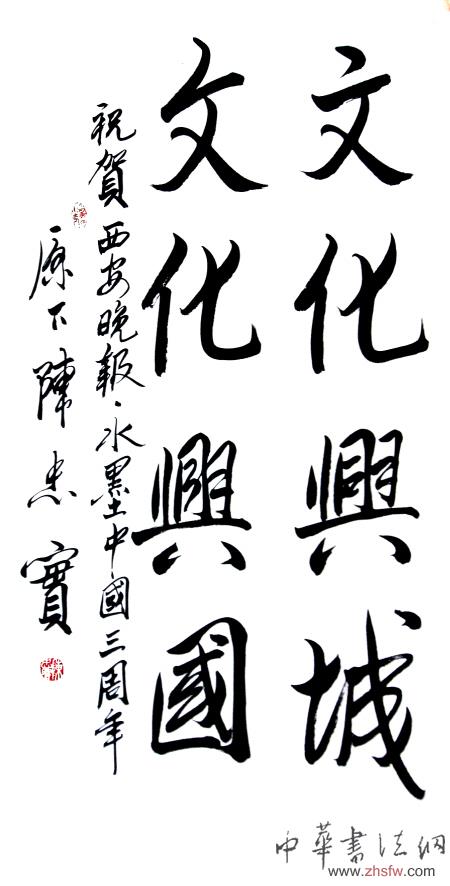 文化興城
文化興國
祝賀西安晚報、水墨中國三周年
原下陳忠實
中華書法網
www.zhsfw.com